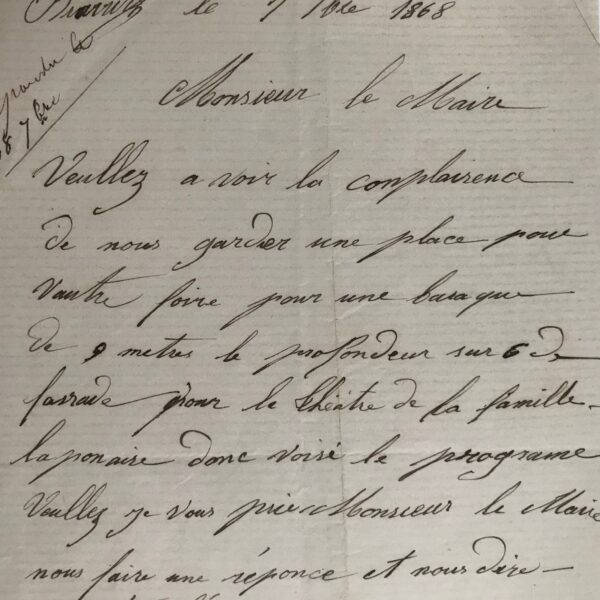 le 7 7bre 1868
répondu le
8 7bre
Monsieur le Maire
Veullez a voir la conplairence
de nous garder une place pour
vautre foire pour une baraque
de 9 metres le profondeur sur 6 de
fassade pour le théâtre de la famille
laponaire donc voisi le programe
Veullez je vous prie Monsieur le Maire
nous faire une réponce et nous dire